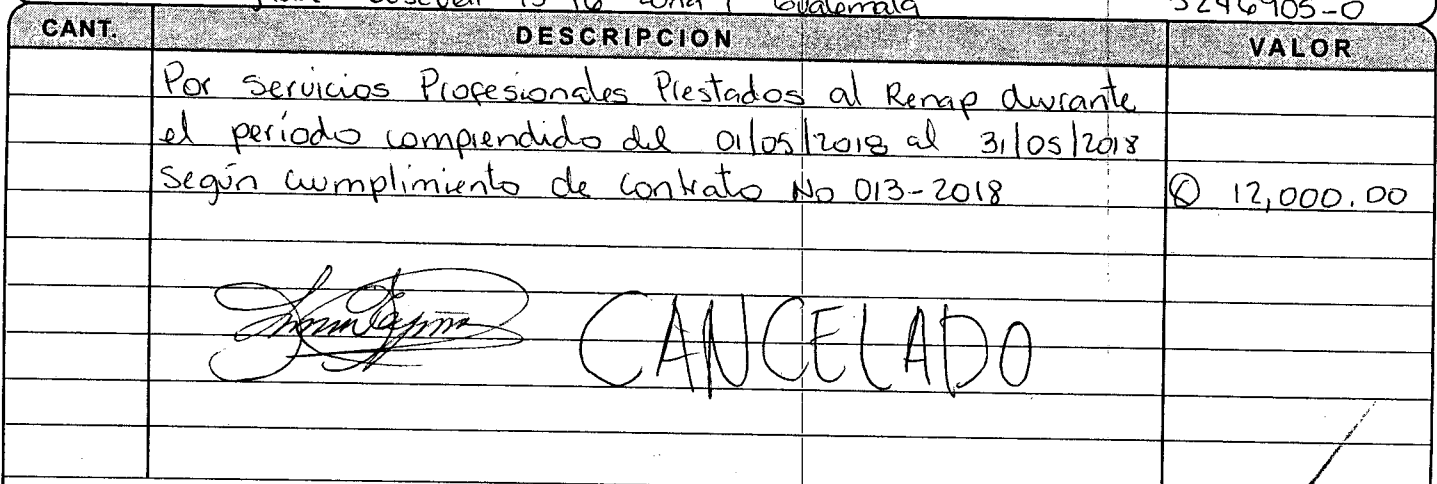 Roosevelt 13-16 zona 1 Guatemala 5246905-0
CANT. DESCRIPCION VALOR
Por servicios Profesionales Prestados al Renap durante
el período comprendido del 01/05/2018 al 31/05/2018
Según cumplimiento de contrato No 013-2018 Q 12,000.00
CANCELADO